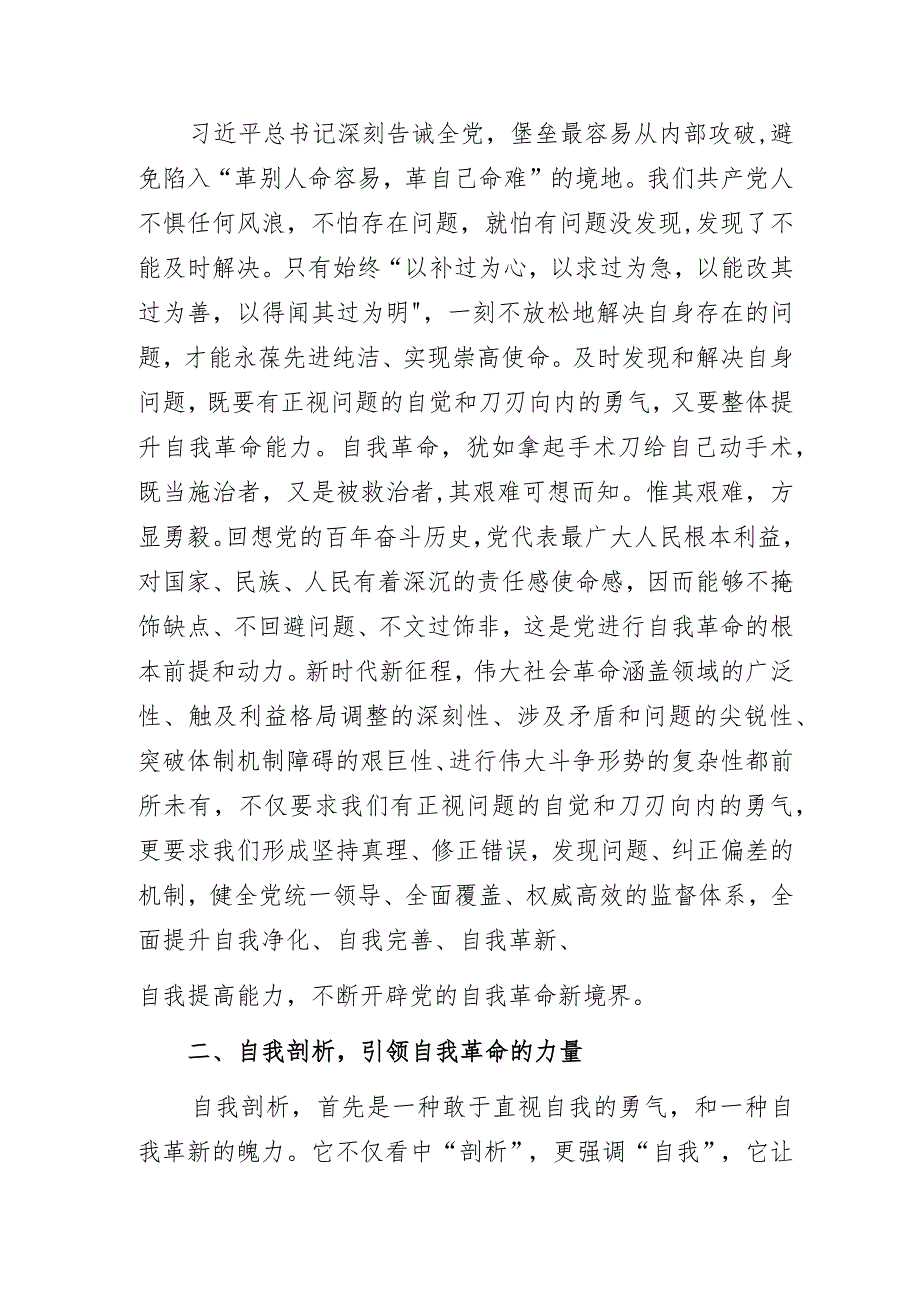 习近平总书记深刻告诫全党，堡垒最容易从内部攻破,避
免陷入“革别人命容易，革自己命难”的境地。我们共产党人
不惧任何风浪，不怕存在问题，就怕有问题没发现,发现了不
能及时解决。只有始终“以补过为心，以求过为急，以能改其
过为善，以得闻其过为明"，一刻不放松地解决自身存在的问
题，才能永葆先进纯洁、实现崇高使命。及时发现和解决自身
问题，既要有正视问题的自觉和刀刃向内的勇气，又要整体提
升自我革命能力。自我革命，犹如拿起手术刀给自己动手术，
既当施治者，又是被救治者,其艰难可想而知。惟其艰难，方
显勇毅。回想党的百年奋斗历史,党代表最广大人民根本利益，
对国家、民族、人民有着深沉的责任感使命感，因而能够不掩
饰缺点、不回避问题、不文过饰非，这是党进行自我革命的根
本前提和动力。新时代新征程，伟大社会革命涵盖领域的广泛
性、触及利益格局调整的深刻性、涉及矛盾和问题的尖锐性、
突破体制机制障碍的艰巨性、进行伟大斗争形势的复杂性都前
所未有，不仅要求我们有正视问题的自觉和刀刃向内的勇气，
更要求我们形成坚持真理、修正错误，发现问题、纠正偏差的
机制，健全党统一领导、全面覆盖、权威高效的监督体系，全
面提升自我净化、自我完善、自我革新、
自我提高能力，不断开辟党的自我革命新境界。
二、自我剖析，引领自我革命的力量
自我剖析，首先是一种敢于直视自我的勇气，和一种自
我革新的魄力。它不仅看中“剖析”，更强调“自我”，它让